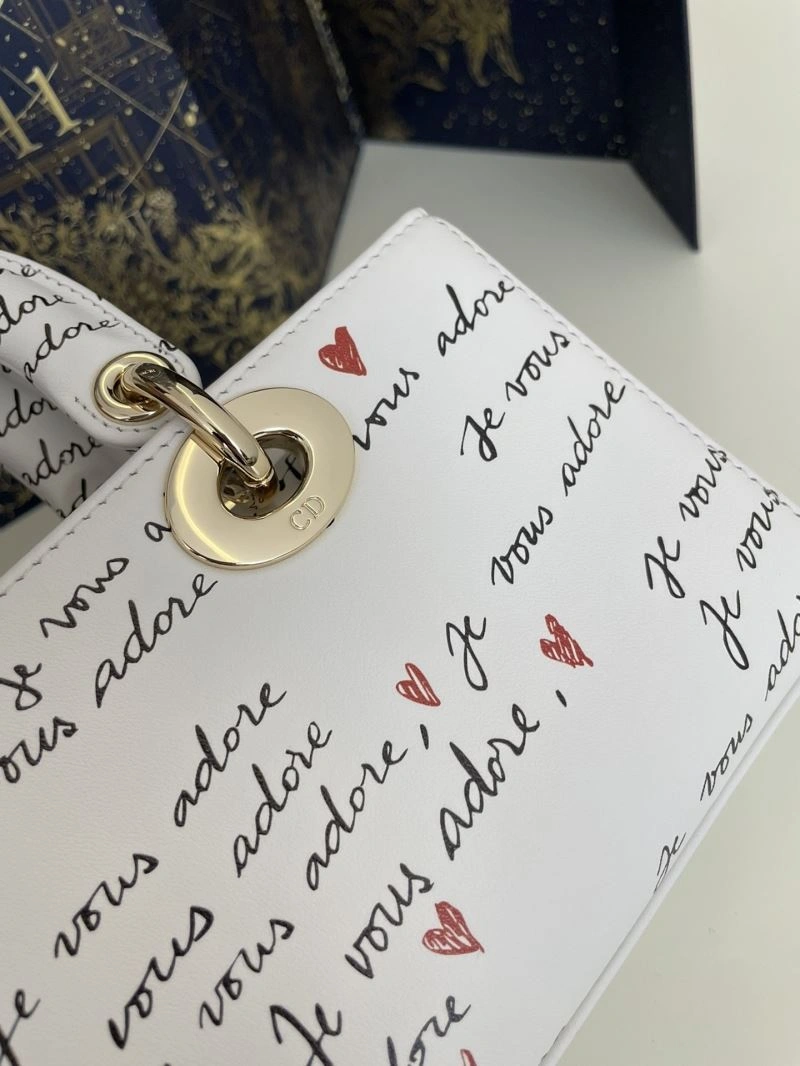 11
adore
adore
adore
adore
vous adore
Je vous
Je vous adore
CD
Je vous a
vous adore
Je vous
Je vous
Je vous adore
Je vous adore
vous adore
vous adore, Je vous adore
Je vous adore,
adore